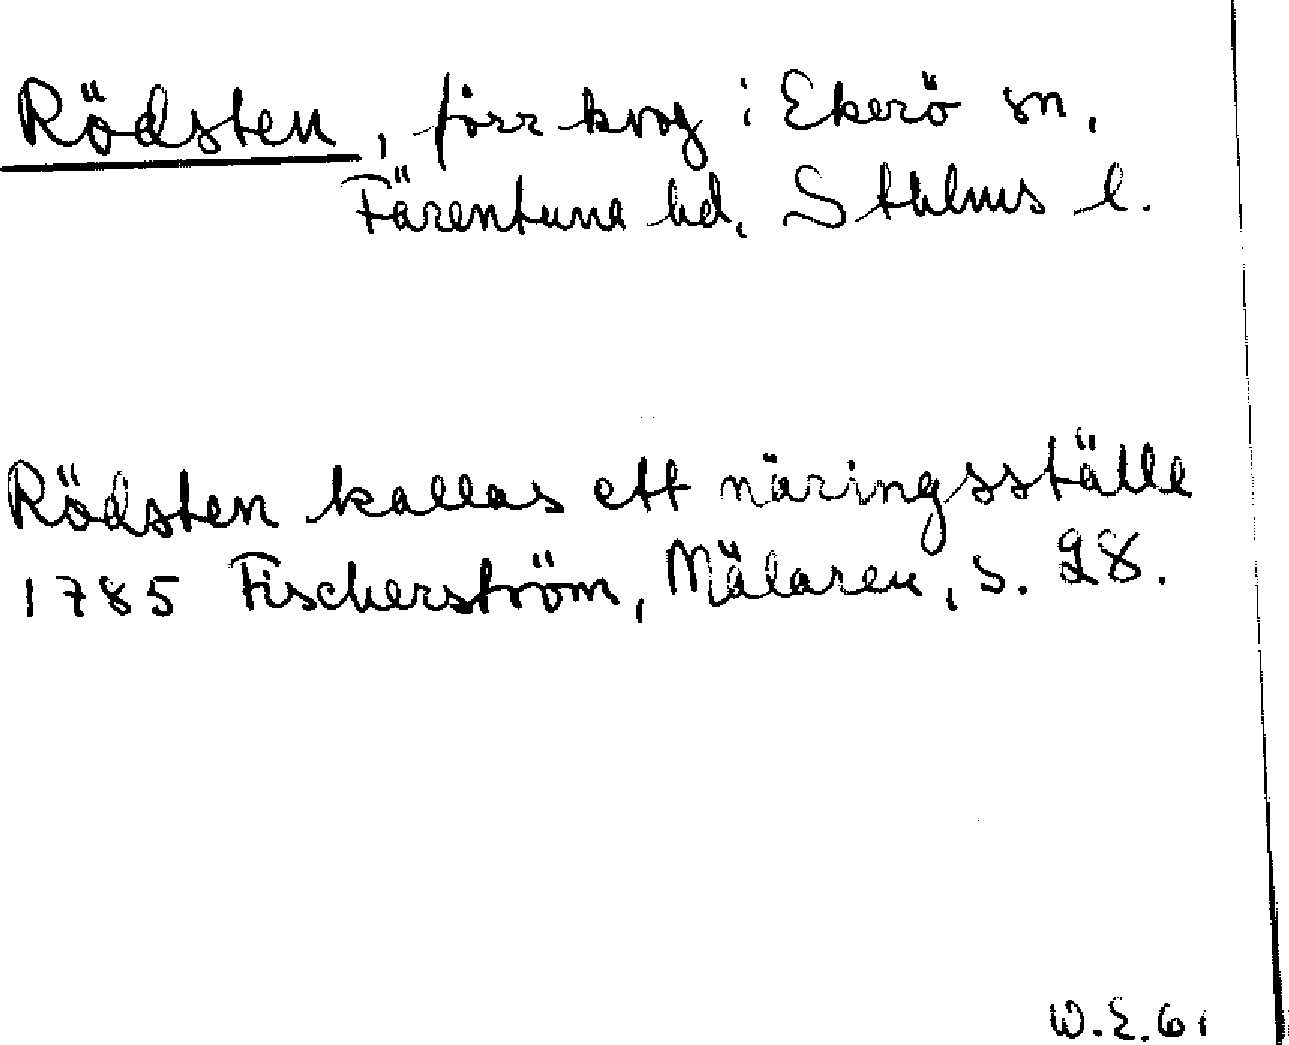 Rödsten, förr krog i Ekerö sn,
Färentuna hd, Sthlms l.
Rödsten kallas ett näringsställe
1785 Fischerström, Mälaren, s. 28.
W.E.61